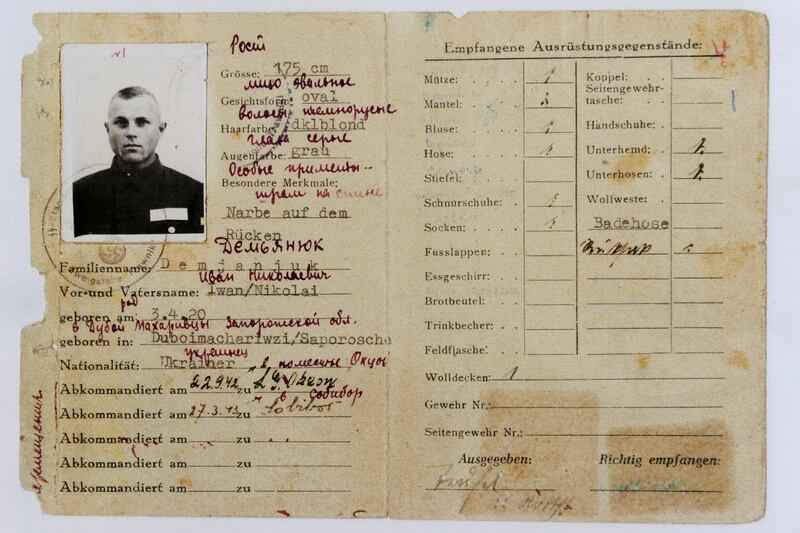 №1
Рост
Grösse: 175 cm
лицо овальное
Gesichtsform: oval
волосы темнорусые
Haarfarbe: dklblond
глаза серые
Augenfarbe: grau
Особые приметы --
Besondere Merkmale:
шрам на спине
Narbe auf dem
Rücken
Демьянюк
Familienname: Demjanjuk
Иван Николаевич
Vor-und Vatersname: Iwan/Nikolai
род
geboren am: 3.4.20
в Дубой Махаривцы Запорожской обл.
geboren in: Duboimachariwzi/Saporosche
украинец
Nationalität: Ukrainer
" в поместье Окцов
Abkommandiert am 22.9.42 zu L.G. Okzow
" в Собибор
Abkommandiert am 27.3.43 zu Sobibor
Abkommandiert am zu
Abkommandiert am zu
Abkommandiert am zu
Empfangene Ausrüstungsgegenstände:
4
Mütze: 1
Mantel: 1
Bluse: 1
Hose: 1
Stiefel:
Schnürschuhe: 1
Socken: 1
Fusslappen:
Essgeschirr:
Brotbeutel:
Trinkbecher:
Feldflasche:
Wolldecken: 1
Gewehr Nr.:
Seitengewehr Nr.:
Koppel:
Seitengewehr-
tasche:
Handschuhe:
Unterhemd: 1
Unterhosen: 1
Wollweste:
Badehose
Ausgegeben:
Richtig empfangen: